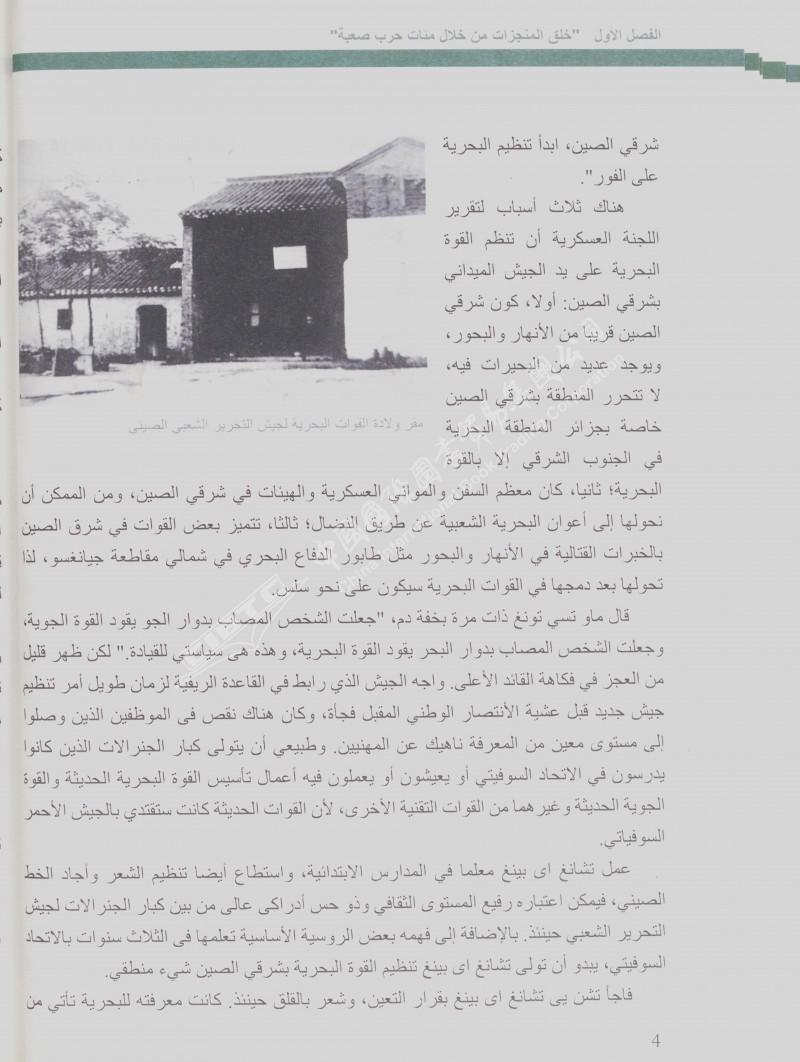 الفصل الأول "خلق المنجزات من خلال مئات حرب صعبة"
شرقي الصين، ابدأ تنظيم البحرية
على الفور".
هناك ثلاث أسباب لتقرير
اللجنة العسكرية أن تنظم القوة
البحرية على يد الجيش الميداني
بشرقي الصين: أولا، كون شرقي
الصين قريبا من الأنهار والبحور،
ويوجد عديد من البحيرات فيه،
لا تتحرر المنطقة بشرقي الصين
خاصة بجزائر المنطقة البحرية
في الجنوب الشرقي إلا بالقوة
مقر ولادة القوات البحرية لجيش التحرير الشعبي الصيني
البحرية؛ ثانيا، كان معظم السفن والمواني العسكرية والهيئات في شرقي الصين، ومن الممكن أن
نحولها إلى أعوان البحرية الشعبية عن طريق النضال؛ ثالثا، تتميز بعض القوات في شرق الصين
بالخبرات القتالية في الأنهار والبحور مثل طابور الدفاع البحري في شمالي مقاطعة جيانغسو، لذا
تحولها بعد دمجها في القوات البحرية سيكون على نحو سلس.
قال ماو تسي تونغ ذات مرة بخفة دم، "جعلت الشخص المصاب بدوار الجو يقود القوة الجوية،
وجعلت الشخص المصاب بدوار البحر يقود القوة البحرية، وهذه هى سياستي للقيادة." لكن ظهر قليل
من العجز في فكاهة القائد الأعلى. واجه الجيش الذي رابط في القاعدة الريفية لزمان طويل أمر تنظيم
جيش جديد قبل عشية الأنتصار الوطني المقبل فجأة، وكان هناك نقص فى الموظفين الذين وصلوا
إلى مستوى معين من المعرفة ناهيك عن المهنيين. وطبيعي أن يتولى كبار الجنرالات الذين كانوا
يدرسون في الاتحاد السوفيتي أو يعيشون أو يعملون فيه أعمال تأسيس القوة البحرية الحديثة والقوة
الجوية الحديثة وغيرهما من القوات التقنية الأخرى، لأن القوات الحديثة كانت ستقتدي بالجيش الأحمر
السوفياتي.
عمل تشانغ اى بينغ معلما في المدارس الابتدائية، واستطاع أيضا تنظيم الشعر وأجاد الخط
الصيني، فيمكن اعتباره رفيع المستوى الثقافي وذو حس أدراكى عالى من بين كبار الجنرالات لجيش
التحرير الشعبي حينئذ. بالإضافة إلى فهمه بعض الروسية الأساسية تعلمها فى الثلاث سنوات بالاتحاد
السوفيتي، يبدو أن تولى تشانغ اى بينغ تنظيم القوة البحرية بشرقي الصين شيء منطقي.
فاجأ تشن يى تشانغ اى بينغ بقرار التعين، وشعر بالقلق حينئذ. كانت معرفته للبحرية تأتي من
4